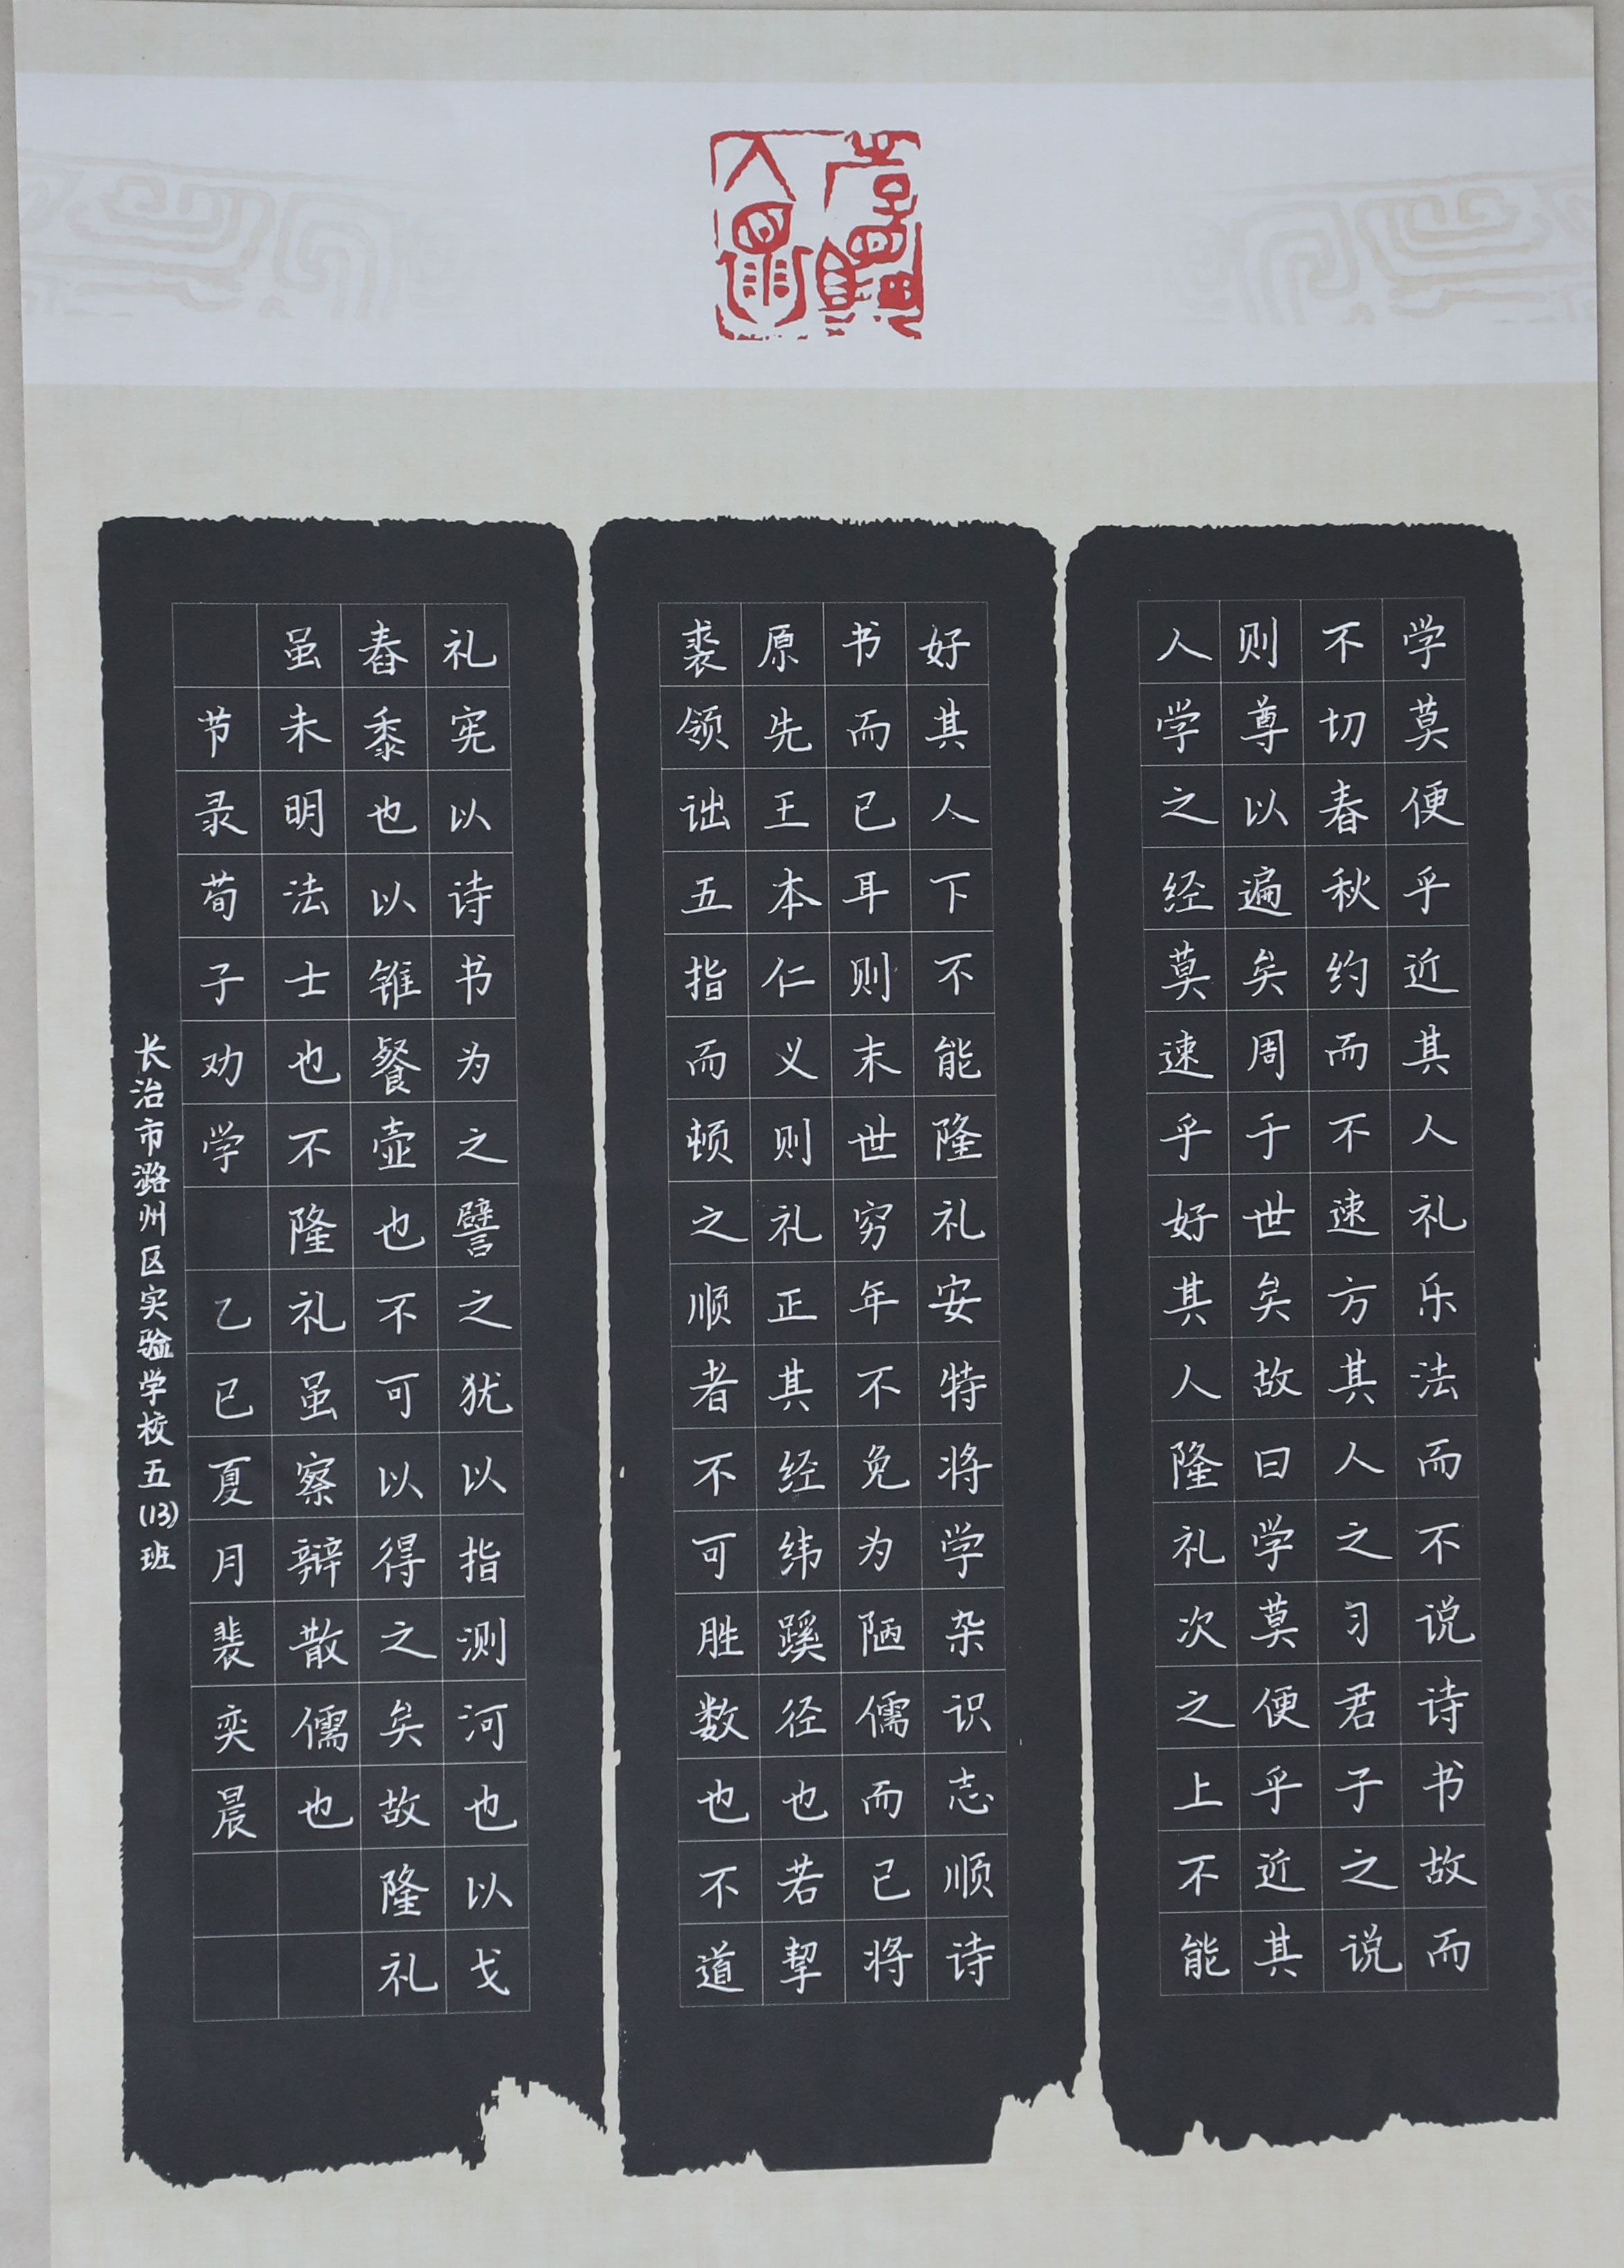 学莫便乎近其人礼乐法而不说诗书故而
不切春秋约而不速方其人之习君子之说
则尊以遍矣周于世矣故曰学莫便乎近其
人学之经莫速乎好其人隆礼次之上不能
好其人下不能隆礼安特将学杂识志顺诗
书而已耳则末世穷年不免为陋儒而已将
原先王本仁义则礼正其经纬蹊径也若挈
裘领诎五指而顿之顺者不可胜数也不道
礼宪以诗书为之譬之犹以指测河也以戈
舂黍也以锥餐壶也不可以得之矣故隆礼
虽未明法士也不隆礼虽察辩散儒也
节录荀子劝学 乙巳夏月裴奕晨
长治市潞州区实验学校五(13)班